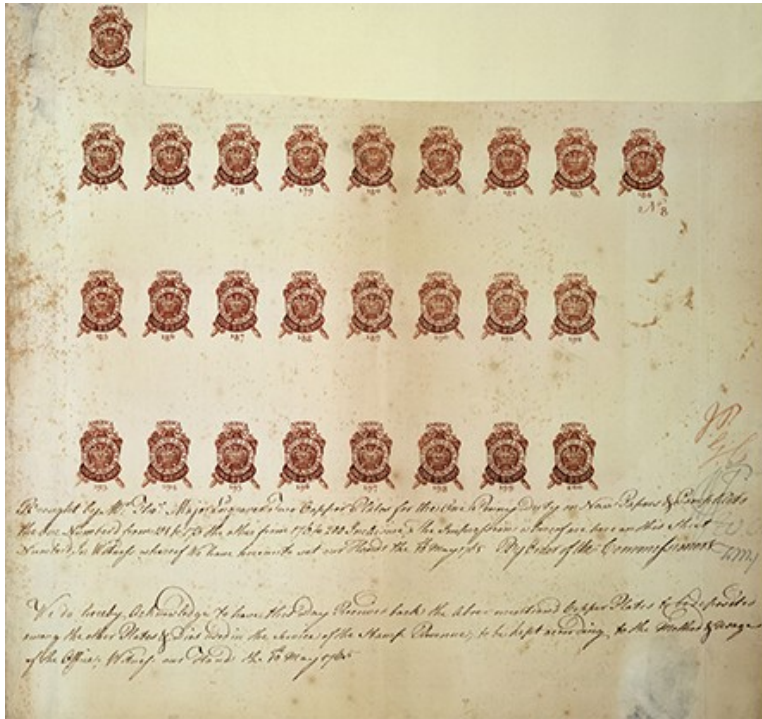 176 177 178 179 180 181 182 183 184
No 8
185 186 187 188 189 190 191 192
193 194 195 196 198 199 200
Brought by Mr. Thos. Major Engraver Two Copper Plates for the One Penny duty on News Papers & Pamphlets
the one Numberd from to 175 the other from 176 to 200 Inclusive, The Impressions whereof are here on this Sheet
Number'd In Witness whereof We have hereunto set our Hands the May 1765 By Order of the Commissioners
We do hereby Acknowledge to have this Day Received back the above mentioned Copper Plates to be deposited
among the other Plates & Dies used in the Service of the Stamp Revenue, to be kept according to the Method & usage
of the Office; Witness our Hand the May 1765